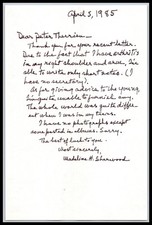 April 3, 1985
Dear Peter Therrien —
Thank you for your recent letter.
Due to the fact that I have arthritis
in my right shoulder and arm, I'm
able to write only short notes. (I
have no secretary).
As for giving advice to the young
I'm quite unable to furnish any.
The whole world was quite differ-
ent when I was in my teens.
I have no photographs except
some pasted in albums. Sorry.
The best of luck to you.
Most sincerely,
Madeleine H. Sherwood